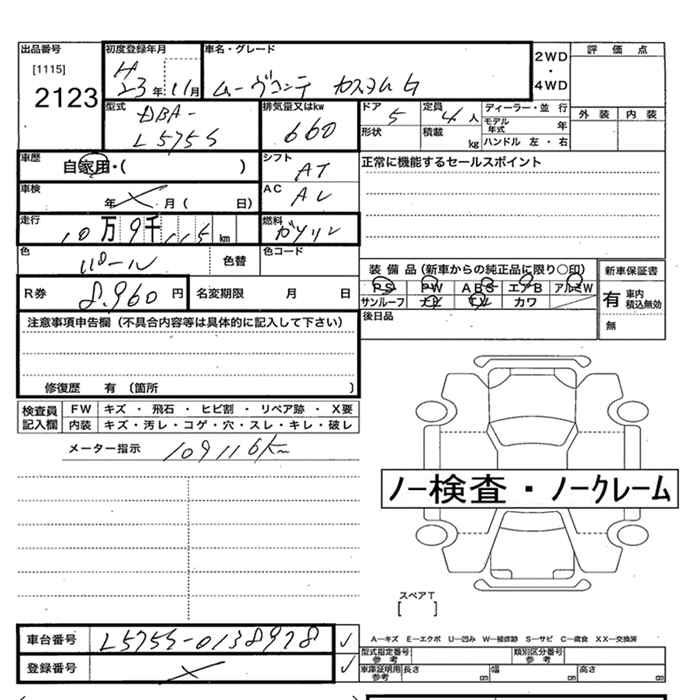 出品番号 初度登録年月 車名・グレード 2WD・4WD 評価点
[1115] H
2123 23年 11月 ムーヴコンテ カスタムG
型式 排気量又はkw ドア 5 定員 4人 ディーラー・並行 外装 内装
DBA- 660 モデル年式 年
L575S 形状 積載 kg ハンドル 左・右
車歴 シフト 正常に機能するセールスポイント
自家用・( ) AT
車検 AC
年 月 ( 日)
走行 燃料
10万9千115km ガソリン
色 色替 色コード
パール 装備品(新車からの純正品に限り○印) 新車保証書
R券 8.960円 名変期限 月 日 PS PW ABS エアB アルミW 有 車内積込無効
サンルーフ ナビ TV カワ
注意事項申告欄(不具合内容等は具体的に記入して下さい) 後日品 無
修復歴 有 (箇所 )
検査員記入欄 FW キズ・飛石・ヒビ割・リペア跡・X要
内装 キズ・汚レ・コゲ・穴・スレ・キレ・破レ
メーター指示 109116
ノー検査・ノークレーム
スペアT
[ ]
車台番号 L575S-0138978 ✓ A―キズ E―エクボ U―凹み W―補修跡 S―サビ C―腐食 XX―交換済
型式指定番号 参考 類別区分番号 参考
登録番号 ✓ 車庫証明用 参考 長さ cm 幅 cm 高さ cm